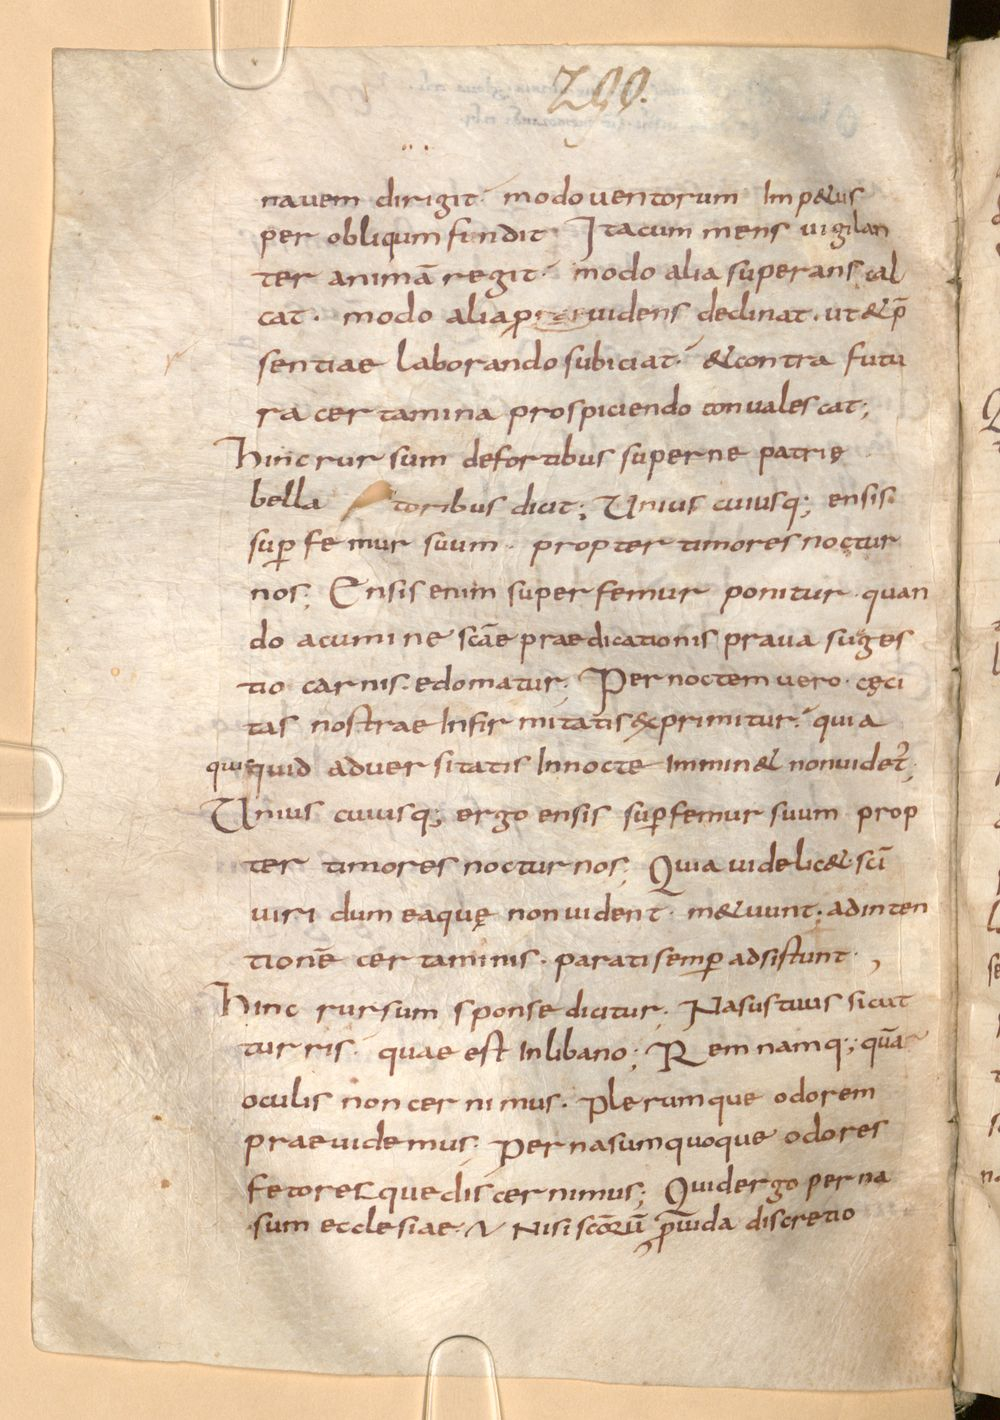 200.
navem dirigit· modo ventorum Imp&us
per obliqum findit· Ita cum mens vigilan
ter animā regit· modo alia superans cal
cat· modo alia pvidens declinat· ut & p̄
sentiae laborando subiciat· & contra futu
ra certamina prospiciendo convalescat;
hinc rursum de fortibus superne patrię
bella toribus dicit; Unius cuiusq; ensis
sup̱ femur suum· propter timores noctur
nos; Ensis enim super femur ponitur· quan
do acumine scāe praedicationis prava suges
tio carnis· edomatur; Per noctem vero· cęci
tas nostrae Infirmitatis exprimitur· quia
quisquid adversitatis In nocte Immin& non videt̄;
Unius cuiusq; ergo ensis sup̱ femur suum prop
ter timores nocturnos; Quia videlic&· sc̄i
viri dum ea quę non vident· m&uunt· ad inten
tionē certaminis· parati semp̱ adsistunt·,
hinc rursum sponse dicitur; Nasus tuus sicut
turris· quae est In libano; Rem namq;· quā
oculis non cernimus· plerumque odorem
praevidemus· Per nasum quoque odores
fetoresque discernimus; Quid ergo per na
sum ecclesiae· Nisi scōrū p̄vida discretio